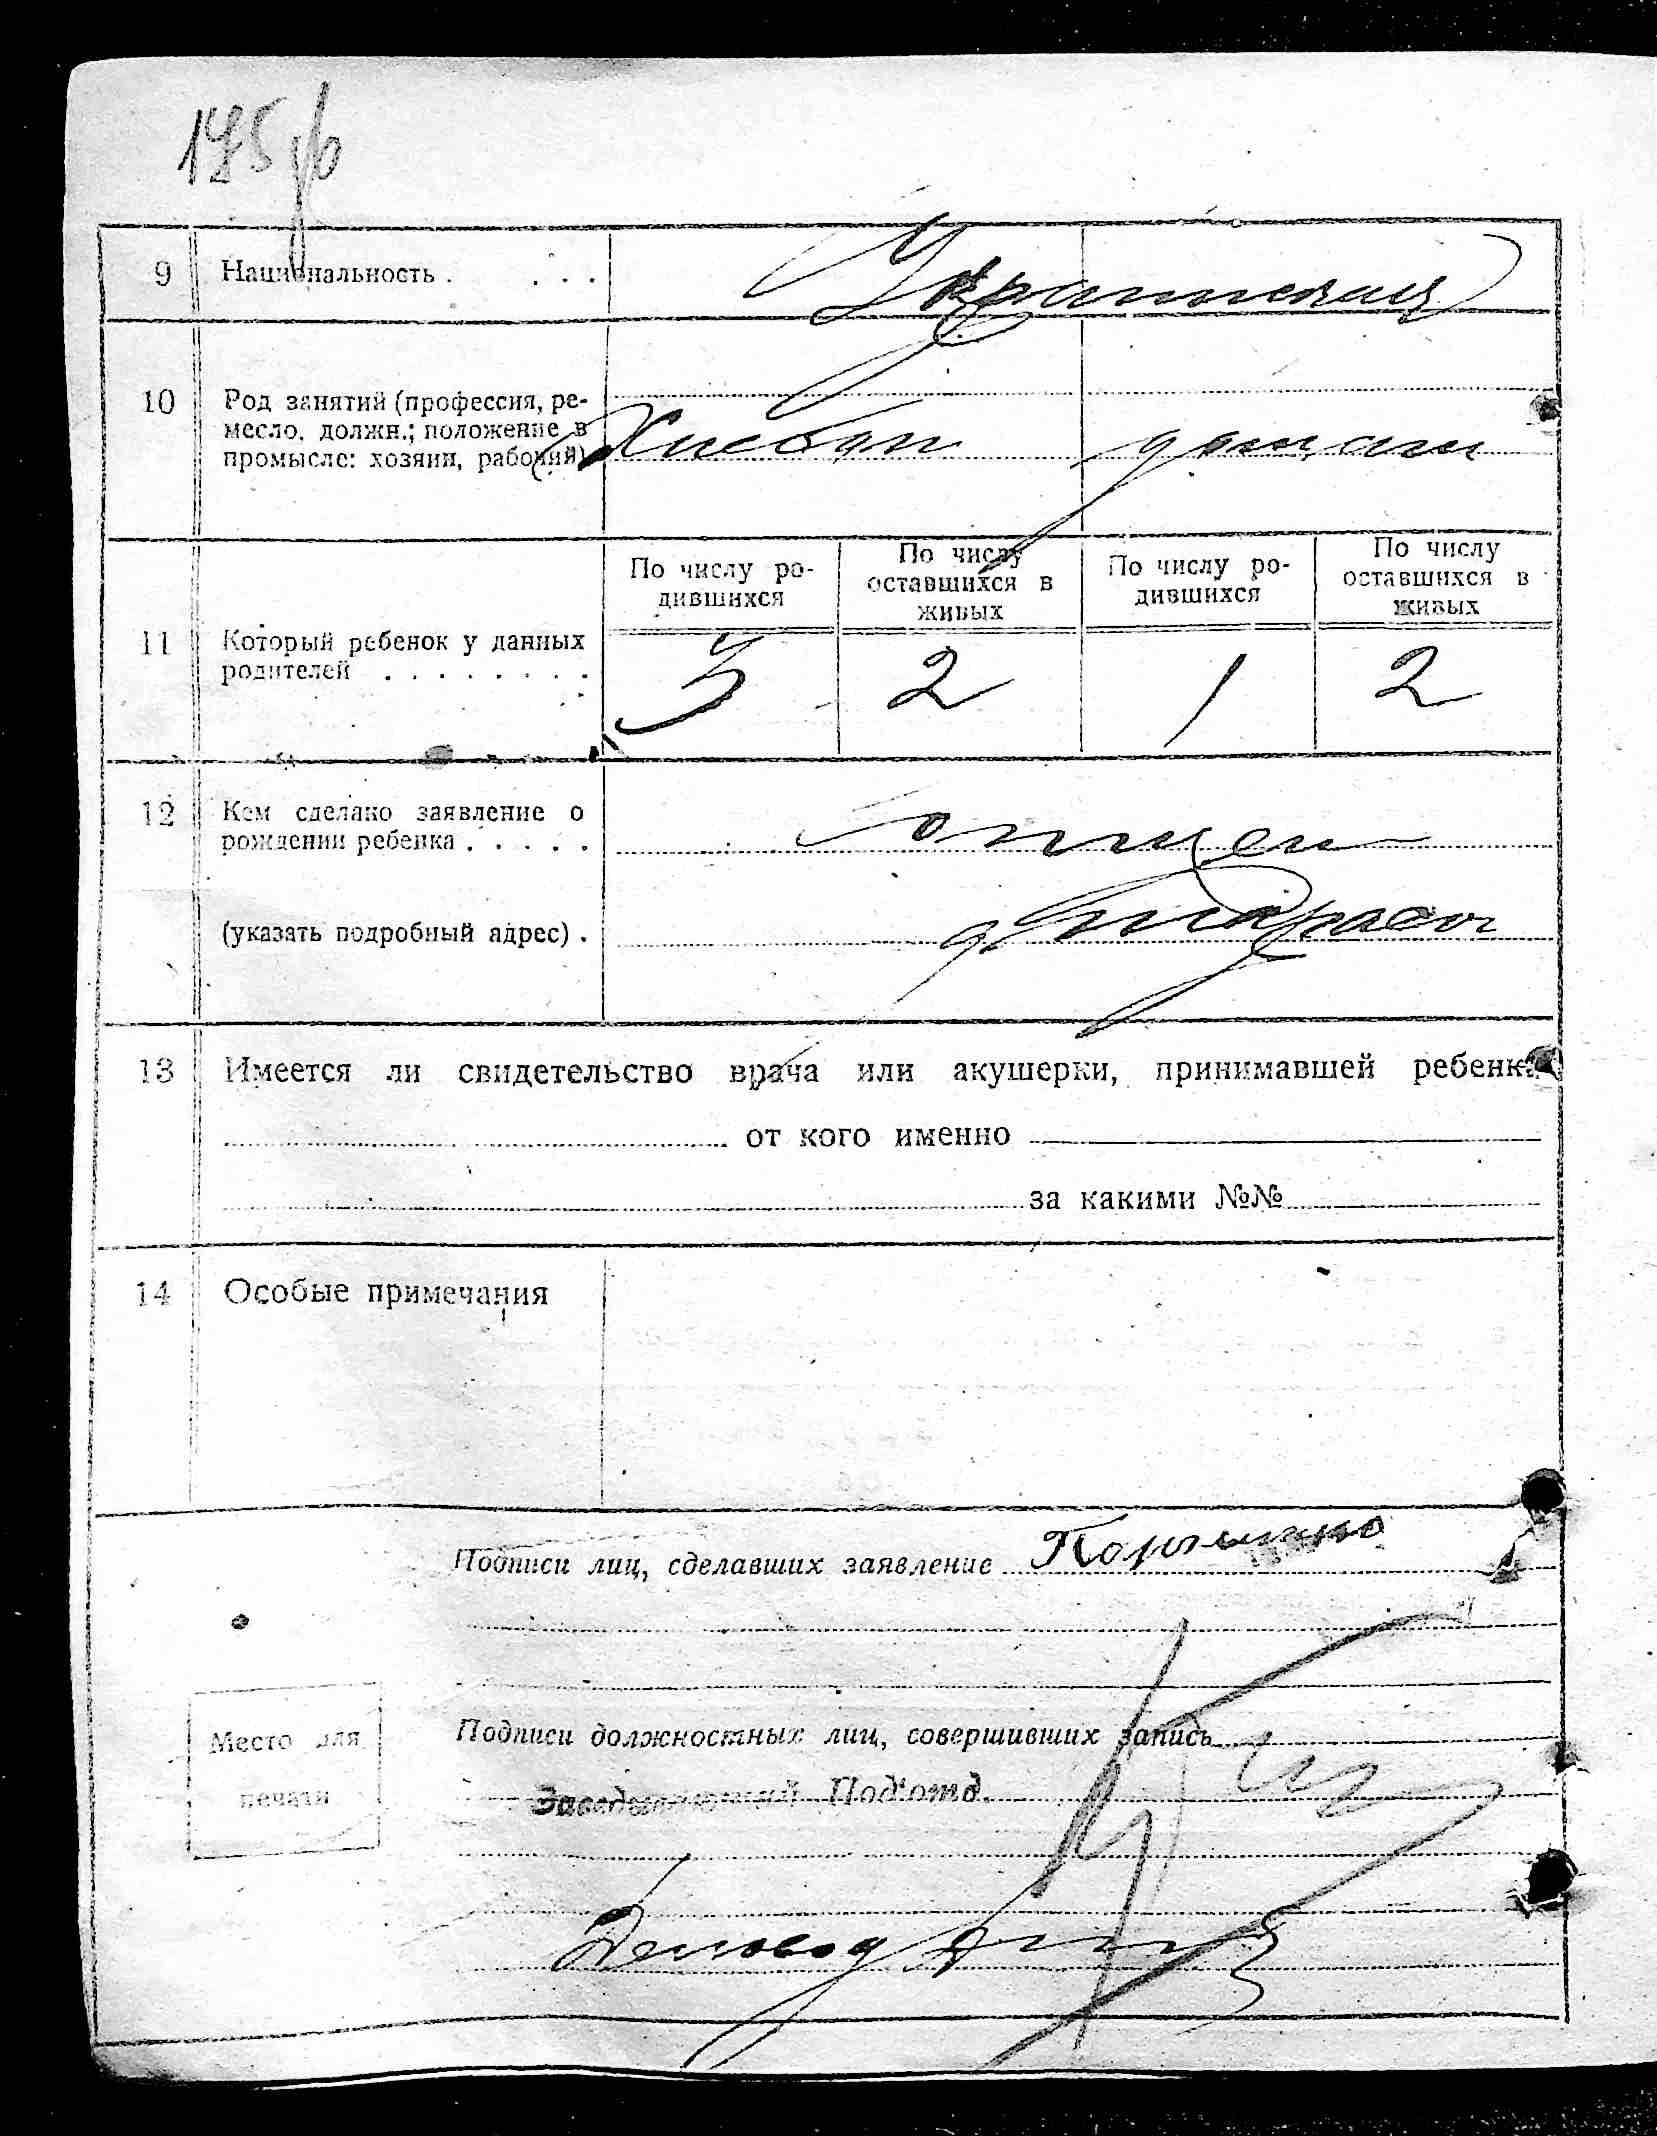 175 об
9 Национальность . . . . Украинская
10 Род занятий (профессия, ре-
месло, должн.; положение в
промысле: хозяин, рабочий) Хлебоп домаш
11 Который ребенок у данных
родителей . . . . . . . .
По числу ро-
дившихся
По числу
оставшихся в
живых
По числу ро-
дившихся
По числу
оставшихся в
живых
3 2 1 2
12 Кем сделано заявление о
рождении ребенка . . . . . отцем
(указать подробный адрес) . д
13 Имеется ли свидетельство врача или акушерки, принимавшей ребенка
от кого именно
за какими №№
14 Особые примечания
Подписи лиц, сделавших заявление
Место для
печати
Подписи должностных лиц, совершивших запись
Заведывающий Под'отд.
Деловод